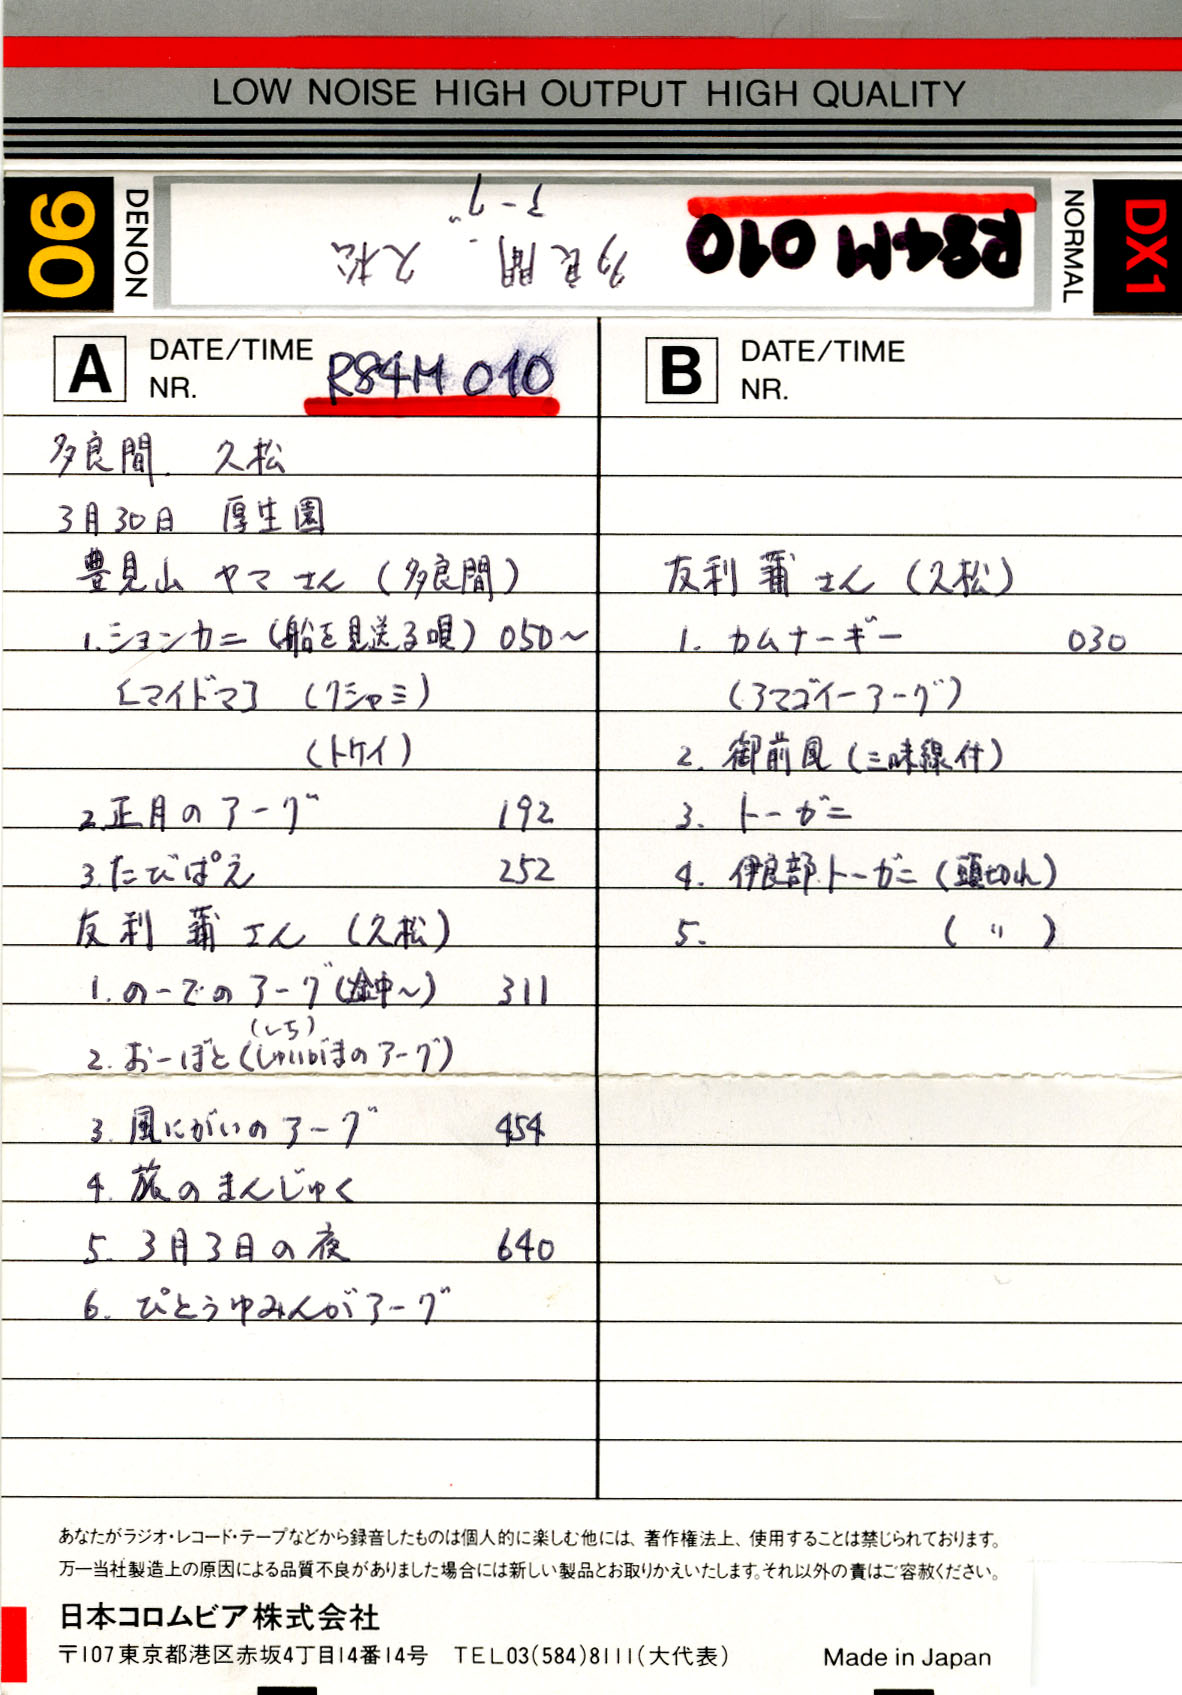 LOW NOISE HIGH OUTPUT HIGH QUALITY
90 DENON
R84M 010
多良間. 久松
アーグ
NORMAL DX1
A DATE/TIME
NR. R84M 010
多良間. 久松
3月30日 厚生園
豊見山 ヤマさん (多良間)
1.ションカニ (船を見送る唄) 050〜
[マイドマ] (クシャミ)
(トケイ)
2.正月のアーグ 192
3.たびぱえ 252
友利 蒲さん (久松)
1.のーでのアーグ(途中〜) 311
(しち)
2.おーぼと(しゅいがまのアーグ)
3.風にがいのアーグ 454
4.旅のまんじゅく
5.3月3日の夜 640
6.ぴとぅゆみんがアーグ
B DATE/TIME
NR.
友利 蒲さん (久松)
1.カムナーギー 030
(アマゴイーアーグ)
2.御前風(三味線付)
3.トーガニ
4.伊良部トーガニ(頭切れ)
5. ( 〃 )
あなたがラジオ・レコード・テープなどから録音したものは個人的に楽しむ他には、著作権法上、使用することは禁じられております。
万一当社製造上の原因による品質不良がありました場合には新しい製品とお取りかえいたします。それ以外の責はご容赦ください。
日本コロムビア株式会社
〒107東京都港区赤坂4丁目14番14号 TEL03(584)8111(大代表) Made in Japan